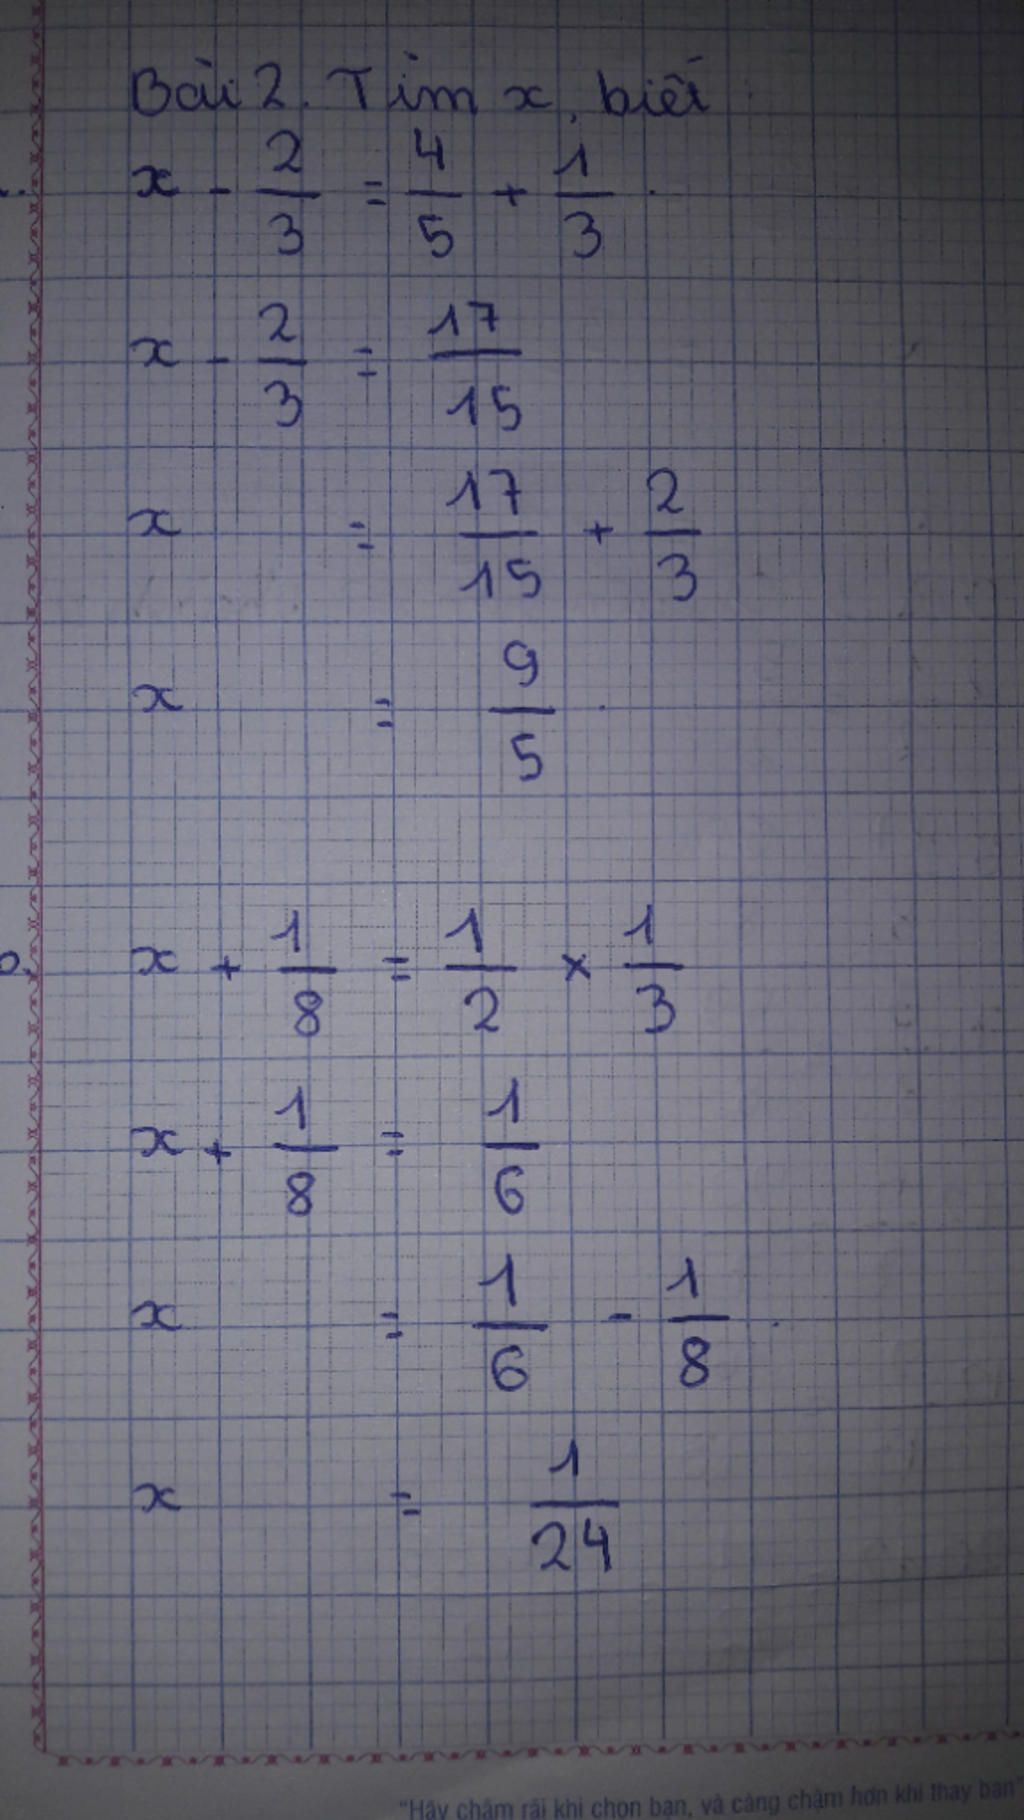 Bài 2. Tìm x, biết:
x - 2/3 = 4/5 + 1/3
x - 2/3 = 17/15
x = 17/15 + 2/3
x = 9/5
x + 1/8 = 1/2 × 1/3
x + 1/8 = 1/6
x = 1/6 - 1/8
x = 1/24
"Hãy chậm rãi khi chọn bạn, và càng chậm hơn khi thay bạn"